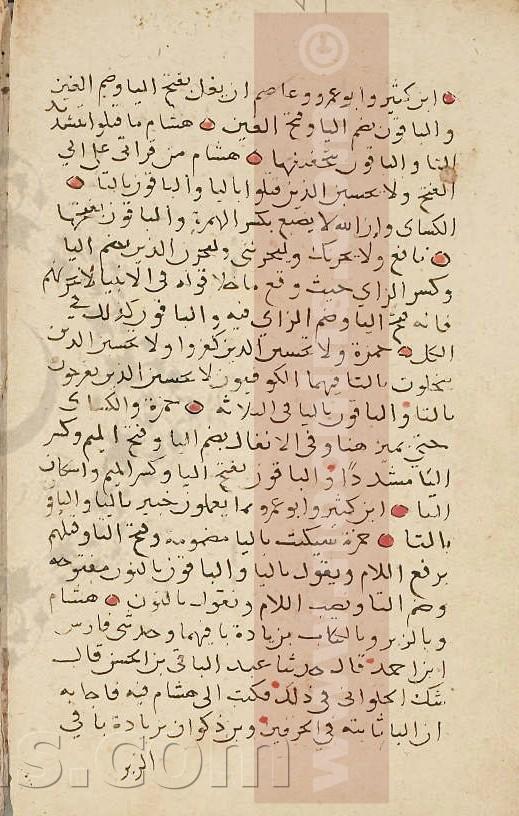 ابن كثير وابو عمرو وعاصم ان يغل بفتح اليا وضم الغين
والباقون بضم اليا وفتح الغين هشام ما قتلوا بتشديد
التا والباقون بتخفيفها هشام من قراتي على ابي
الفتح ولا يحسبن الذين قتلوا باليا والباقون بالتا
الكساي وان الله لا يضيع بكسر الهمزة والباقون بفتحها
نافع ولا يحزنك وليحزنني وليحزن الذين بضم اليا
وكسر الزاي حيث وقع ما خلا قوله في الانبيا لا يحزنهم
فانه فتح اليا وضم الزاي فيه والباقون كذلك في
الكل حمزة ولا تحسبن الذين كفروا ولا تحسبن الذين
يبخلون بالتا فيهما الكوفيون لا تحسبن الذين يفرحون
بالتا والباقون باليا في الثلاثة حمزة والكساي
حتي يميز هنا وفي الانفال بضم اليا وفتح الميم وكسر
اليا مشددا والباقون بفتح اليا وكسر الميم واسكان
اليا ابن كثير وابو عمرو بما يعملون خبير باليا والباقو
بالتا حمزة سيكتب باليا مضمومة وفتح التا وقتلهم
برفع اللام ويقول باليا والباقون بالنون مفتوحة
وضم التا ونصب اللام ونقول بالنون هشام
وبالزبر وبالكتاب بزيادة با فيهما وحدثني فارس
ابن احمد قال حدثنا عبد الباقي بن الحسن قال
شك الحلواني في ذلك فكتب الى هشام فيه فاجابه
ان البا ثابتة في الحرفين وبن ذكوان بزيادة با في
الزبر
s.com